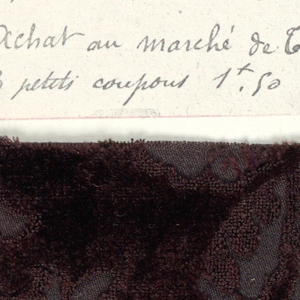 Achat au marché de T
3 petits coupons 1f.50